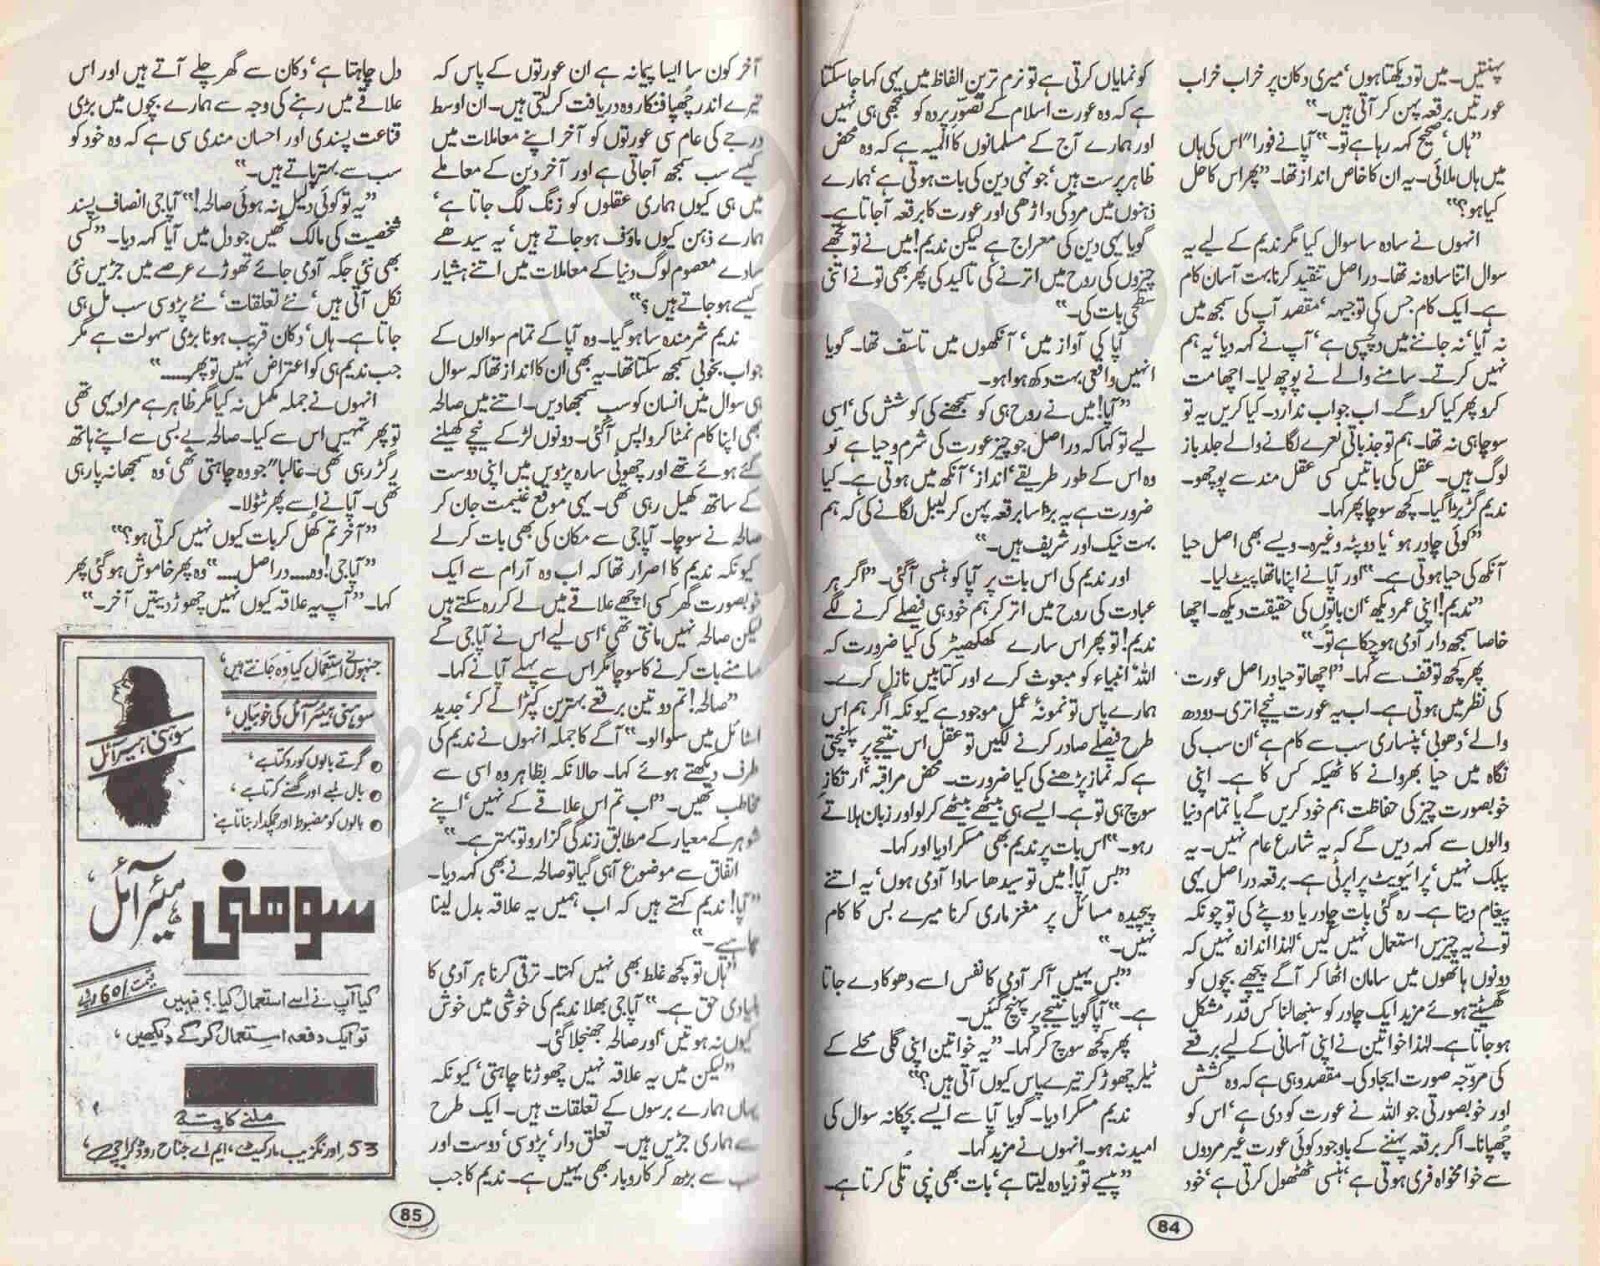 پہنتیں۔ میں تو دیکھتا ہوں‘ میری دکان پر خراب خراب
عورتیں برقعہ پہن کر آتی ہیں۔“
”ہاں‘ صحیح کہہ رہا ہے تو۔“ آپا نے فورا“ اس کی ہاں
میں ہاں ملائی۔ یہ ان کا خاص انداز تھا۔ ”پھر اس کا حل
کیا ہو؟“
انہوں نے سادہ سا سوال کیا مگر ندیم کے لیے یہ
سوال اتنا سادہ نہ تھا۔ دراصل تنقید کرنا بہت آسان کام
ہے۔ ایک کام جس کی توجیہہ‘ مقصد آپ کی سمجھ میں
نہ آیا‘ نہ جاننے میں دلچسپی ہے‘ آپ نے کہہ دیا‘ یہ ہم
نہیں کرتے۔ سامنے والے نے پوچھ لیا۔ اچھا مت
کرو پھر کیا کرو گے۔ اب جواب ندارد۔ کیا کریں یہ تو
سوچا ہی نہ تھا۔ ہم تو جذباتی نعرے لگانے والے جلد باز
لوگ ہیں۔ عقل کی باتیں کسی عقل مند سے پوچھو۔
ندیم گڑبڑا گیا۔ کچھ سوچا پھر کہا۔
”کوئی چادر ہو‘ یا دوپٹہ وغیرہ۔ ویسے بھی اصل حیا
آنکھ کی حیا ہوتی ہے۔“ اور آپا نے اپنا ماتھا پیٹ لیا۔
”ندیم! اپنی عمر دیکھ‘ ان باتوں کی حقیقت دیکھ۔ اچھا
خاصا سمجھ دار آدمی ہو چکا ہے تو۔“
پھر کچھ توقف سے کہا۔ ”اچھا تو حیا دراصل عورت
کی نظر میں ہوتی ہے۔ اب یہ عورت نیچے اتری۔ دودھ
والے‘ دھوبی‘ پنساری سب سے کام ہے‘ ان سب کی
نگاہ میں حیا بھروانے کا ٹھیکہ کس کا ہے۔ اپنی
خوبصورت چیز کی حفاظت ہم خود کریں گے یا تمام دنیا
والوں سے کہہ دیں گے کہ یہ شارع عام نہیں۔ یہ
پبلک نہیں‘ پرائیویٹ پراپرٹی ہے۔ برقعہ دراصل یہی
پیغام دیتا ہے۔ رہ گئی بات چادر یا دوپٹے کی تو چونکہ
تو نے یہ چیزیں استعمال نہیں کیں‘ لہٰذا اندازہ نہیں کہ
دونوں ہاتھوں میں سامان اٹھا کر آگے پیچھے بچوں کو
گھسیٹتے ہوئے مزید ایک چادر کو سنبھالنا کس قدر مشکل
ہو جاتا ہے۔ لہٰذا خواتین نے اپنی آسانی کے لیے برقعے
کی مروّجہ صورت ایجاد کی۔ مقصد وہی ہے کہ وہ کشش
اور خوبصورتی جو اللہ نے عورت کو دی ہے‘ اس کو
چُھپانا۔ اگر برقعہ پہننے کے باوجود کوئی عورت غیر مردوں
سے خوامخواہ فری ہوتی ہے‘ ہنسی ٹھٹھول کرتی ہے‘ خود
کو نمایاں کرتی ہے تو نرم ترین الفاظ میں یہی کہا جا سکتا
ہے کہ وہ عورت اسلام کے تصوّرِ پردہ کو سمجھی ہی نہیں
اور ہمارے آج کے مسلمانوں کا المیہ ہے کہ وہ محض
ظاہر پرست ہیں‘ جونہی دین کی بات ہوتی ہے‘ ہمارے
ذہنوں میں مرد کی داڑھی اور عورت کا برقعہ آجاتا ہے۔
گویا یہی دین کی معراج ہے لیکن ندیم! میں نے تو تجھے
چیزوں کی روح میں اترنے کی تاکید کی پھر بھی تو نے اتنی
سطحی بات کی۔“
آپا کی آواز میں‘ آنکھوں میں تاسّف تھا۔ گویا
انہیں واقعی بہت دکھ ہوا ہو۔
”آپا! میں نے روح ہی کو سمجھنے کی کوشش کی‘ اسی
لیے تو کہا کہ دراصل جو چیز عورت کی شرم و حیا ہے تو
وہ اس کے طور طریقے‘ انداز‘ آنکھ میں ہوتی ہے۔ کیا
ضرورت ہے یہ بڑا سا برقعہ پہن کر لیبل لگانے کی کہ ہم
بہت نیک اور شریف ہیں۔“
اور ندیم کی اس بات پر آپا کو ہنسی آگئی۔ ”اگر ہر
عبادت کی روح میں اتر کر ہم خود ہی فیصلے کرنے لگے
ندیم! تو پھر اس سارے کھکھیڑ کی کیا ضرورت کہ
اللہ‘ انبیاء کو مبعوث کرے اور کتابیں نازل کرے۔
ہمارے پاس تو نمونہ عمل موجود ہے کیونکہ اگر ہم اس
طرح فیصلے صادر کرنے لگیں تو عقل اس نتیجے پر پہنچتی
ہے کہ نماز پڑھنے کی کیا ضرورت۔ محض مراقبہ‘ ارتکازِ
سوچ ہی تو ہے۔ ایسے ہی بیٹھے بیٹھے کر لو اور زبان ہلاتے
رہو۔“ اس بات پر ندیم بھی مسکرا دیا اور کہا۔
”بس آپا! میں تو سیدھا سادا آدمی ہوں‘ یہ اتنے
پیچیدہ مسائل پر مغز ماری کرنا میرے بس کا کام
نہیں۔“
”بس یہیں آکر آدمی کا نفس اسے دھوکا دے جاتا
ہے۔“ آپا گویا نتیجے پر پہنچ گئیں۔
پھر کچھ سوچ کر کہا۔ ”یہ خواتین اپنی گلی محلے کے
ٹیلر چھوڑ کر تیرے پاس کیوں آتی ہیں؟“
ندیم مسکرا دیا۔ گویا آپا سے ایسے بچکانہ سوال کی
امید نہ ہو۔ انہوں نے مزید کہا۔
”پیسے تُو زیادہ لیتا ہے‘ بات بھی نپی تلی کرتا ہے۔
84
آخر کون سا ایسا پیمانہ ہے ان عورتوں کے پاس کہ
تیرے اندر چُھپا فنکار وہ دریافت کر لیتی ہیں۔ ان اوسط
درجے کی عام سی عورتوں کو آخر اپنے معاملات میں
کیسے سب سمجھ آجاتی ہے اور آخر دین کے معاملے
میں ہی کیوں ہماری عقلوں کو زنگ لگ جاتا ہے‘
ہمارے ذہن کیوں ماؤف ہو جاتے ہیں‘ یہ سیدھے
سادے معصوم لوگ دنیا کے معاملات میں اتنے ہشیار
کیسے ہو جاتے ہیں؟“
ندیم شرمندہ سا ہو گیا۔ وہ آپا کے تمام سوالوں کے
جواب بخوبی سمجھ سکتا تھا۔ یہ بھی ان کا انداز تھا کہ سوال
ہی سوال میں انسان کو سب سمجھا دیں۔ اتنے میں صالحہ
بھی اپنا کام نمٹا کر واپس آگئی۔ دونوں لڑکے نیچے کھیلنے
گئے ہوئے تھے اور چھوٹی سارہ پڑوس میں اپنی دوست
کے ساتھ کھیل رہی تھی۔ یہی موقع غنیمت جان کر
صالحہ نے سوچا۔ آپا جی سے مکان کی بھی بات کر لے
کیونکہ ندیم کا اصرار تھا کہ اب وہ آرام سے ایک
خوبصورت گھر کسی اچھے علاقے میں لے کر رہ سکتے ہیں
لیکن صالحہ نہیں مانتی تھی‘ اسی لیے اس نے آپا جی کے
سامنے بات کرنے کا سوچا مگر اس سے پہلے آپا نے کہا۔
”صالحہ! تم دو تین برقعے بہترین کپڑا لے کر‘ جدید
اسٹائل میں سلوالو۔“ آگے کا جملہ انہوں نے ندیم کی
طرف دیکھتے ہوئے کہا۔ حالانکہ بظاہر وہ اسی سے
مخاطب تھیں۔ ”اب تم اس علاقے کے نہیں‘ اپنے
شوہر کے معیار کے مطابق زندگی گزارو تو بہتر ہے۔“
اتفاق سے موضوع آہی گیا تو صالحہ نے بھی کہہ دیا۔
”آپا! ندیم کہتے ہیں کہ اب ہمیں یہ علاقہ بدل لینا
چاہیے۔“
”ہاں تو کچھ غلط بھی نہیں کہتا۔ ترقی کرنا ہر آدمی کا
بنیادی حق ہے۔“ آپا جی بھلا ندیم کی خوشی میں خوش
کیوں نہ ہوتیں‘ اور صالحہ جھنجلا گئی۔
”لیکن میں یہ علاقہ نہیں چھوڑنا چاہتی‘ کیونکہ
یہاں ہمارے برسوں کے تعلقات ہیں۔ ایک طرح
سے ہماری جڑیں ہیں۔ تعلق دار‘ پڑوسی‘ دوست اور
سب سے بڑھ کر کاروبار بھی یہیں ہے۔ ندیم کا جب
دل چاہتا ہے‘ دکان سے گھر چلے آتے ہیں اور اس
علاقے میں رہنے کی وجہ سے ہمارے بچوں میں بڑی
قناعت پسندی اور احسان مندی سی ہے کہ وہ خود کو
سب سے بہتر پاتے ہیں۔“
”یہ تو کوئی دلیل نہ ہوئی صالحہ!“ آپا جی انصاف پسند
شخصیت کی مالک تھیں جو دل میں آیا کہہ دیا۔ ”کسی
بھی نئی جگہ آدمی جائے تھوڑے عرصے میں جڑیں نئی
نکل آتی ہیں‘ نئے تعلقات‘ نئے پڑوسی سب مل ہی
جاتا ہے۔ ہاں‘ دکان قریب ہونا بڑی سہولت ہے مگر
جب ندیم ہی کو اعتراض نہیں تو پھر.....“
انہوں نے جملہ مکمل نہ کیا مگر ظاہر ہے مراد یہی تھی
تو پھر تمہیں اس سے کیا۔ صالحہ بے بسی سے اپنے ہاتھ
رگڑ رہی تھی۔ غالبا“ جو وہ چاہتی تھی‘ وہ سمجھا نہ پا رہی
تھی۔ آپا نے اسے پھر ٹٹولا۔
”آخر تم کُھل کر بات کیوں نہیں کرتی ہو؟“
”آپا جی! وہ.... دراصل....“ وہ پھر خاموش ہو گئی پھر
کہا۔ ”آپ یہ علاقہ کیوں نہیں چھوڑ دیتیں آخر۔“
جنہوں نے استعمال کیا وہ جانتے ہیں،
سوہنی ہیئر آئل کی خوبیاں،
گرتے بالوں کو روکتا ہے،
بال لمبے اور گھنے کرتا ہے،
بالوں کو مضبوط اور چمکدار بناتا ہے،
سوہنی ہیئر آئل
سوہنی ہیئر آئل،
قیمت 60/= روپے
کیا آپ نے اسے استعمال کیا؟ نہیں
تو ایک دفعہ استعمال کر کے دیکھیں،
ملنے کا پتہ
53، اورنگزیب مارکیٹ، ایم اے جناح روڈ کراچی،
85